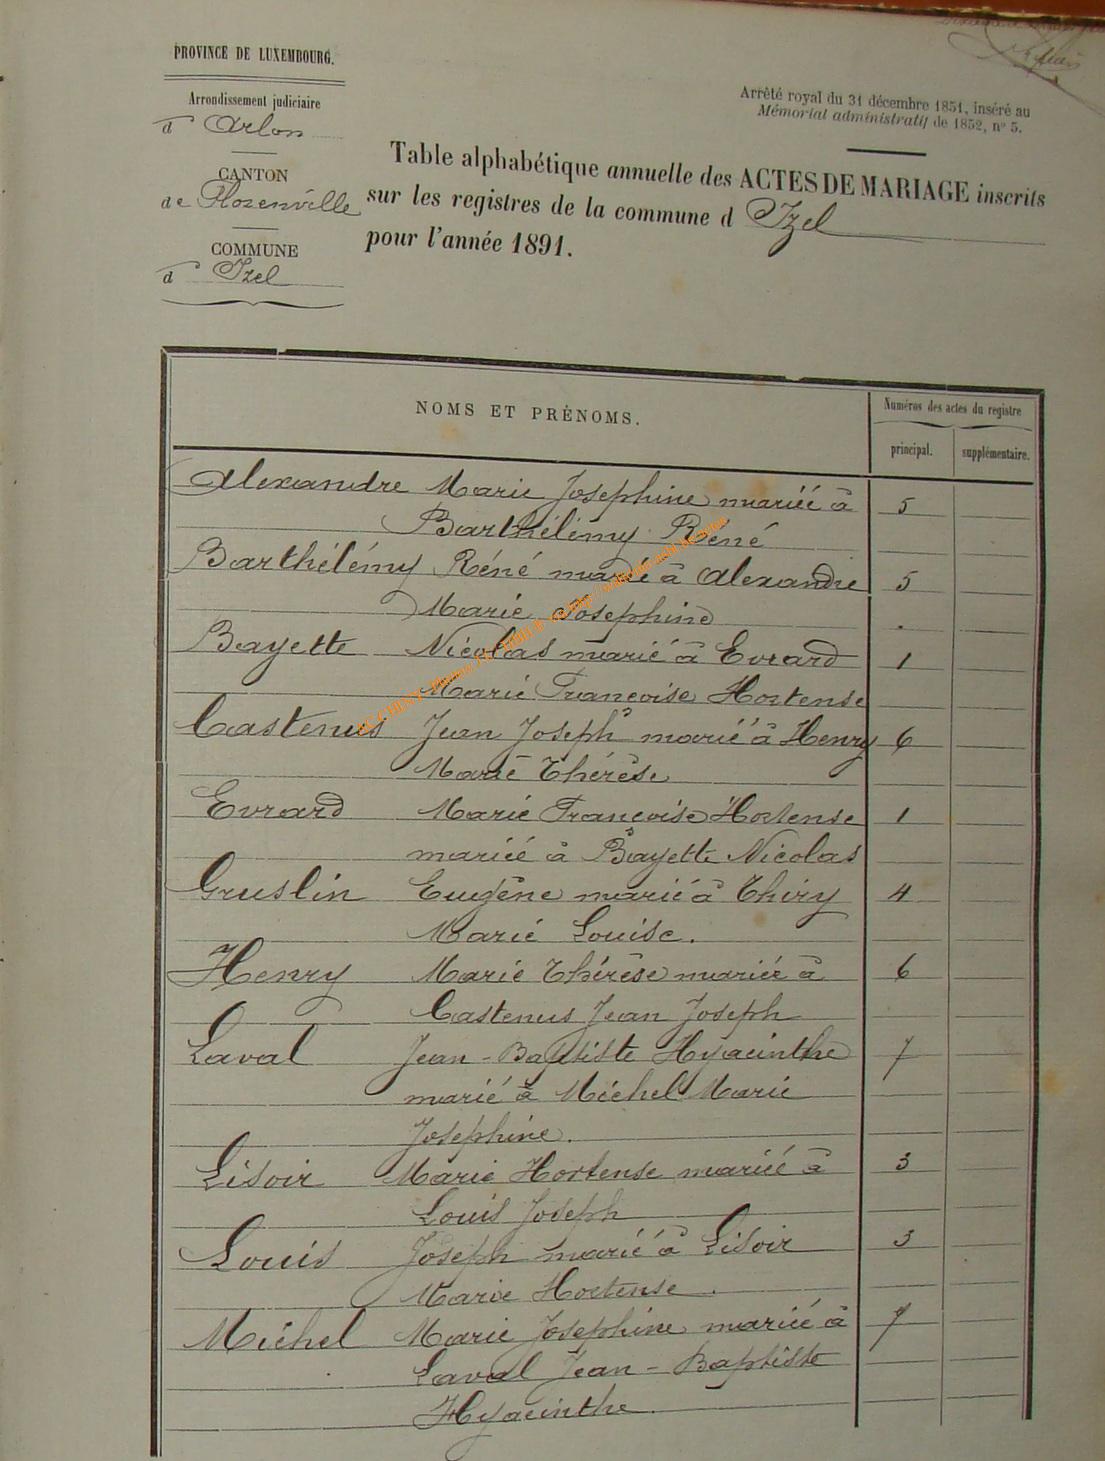 PROVINCE DE LUXEMBOURG.
Arrondissement judiciaire
d'Arlon
CANTON
de Florenville
COMMUNE
d'Izel
Arrêté royal du 31 décembre 1851, inséré au
Mémorial administratif de 1852, n° 5.
Table alphabétique annuelle des ACTES DE MARIAGE inscrits
sur les registres de la commune d'Izel
pour l'année 1891.
NOMS ET PRÉNOMS.
Numéros des actes du registre
principal. supplémentaire.
Alexandre Marie Josephine mariée à 5
Barthélémy Réné
Barthélémy Réné marié à Alexandre 5
Marie Josephine
Bayette Nicolas marié à Evrard 1
Marie Françoise Hortense
Castenus Jean Joseph marié à Henry 6
Marie Thérèse
Evrard Marie Françoise Hortense 1
mariée à Bayette Nicolas
Gruslin Eugène marié à Thiry 4
Marie Louise.
Henry Marie Thérèse mariée à 6
Castenus Jean Joseph
Laval Jean-Baptiste Hyacinthe 7
marié à Michel Marie
Josephine.
Lisoir Marie Hortense mariée à 3
Louis Joseph
Louis Joseph marié à Lisoir 3
Marie Hortense.
Michel Marie Josephine mariée à 7
Laval Jean-Baptiste
Hyacinthe.